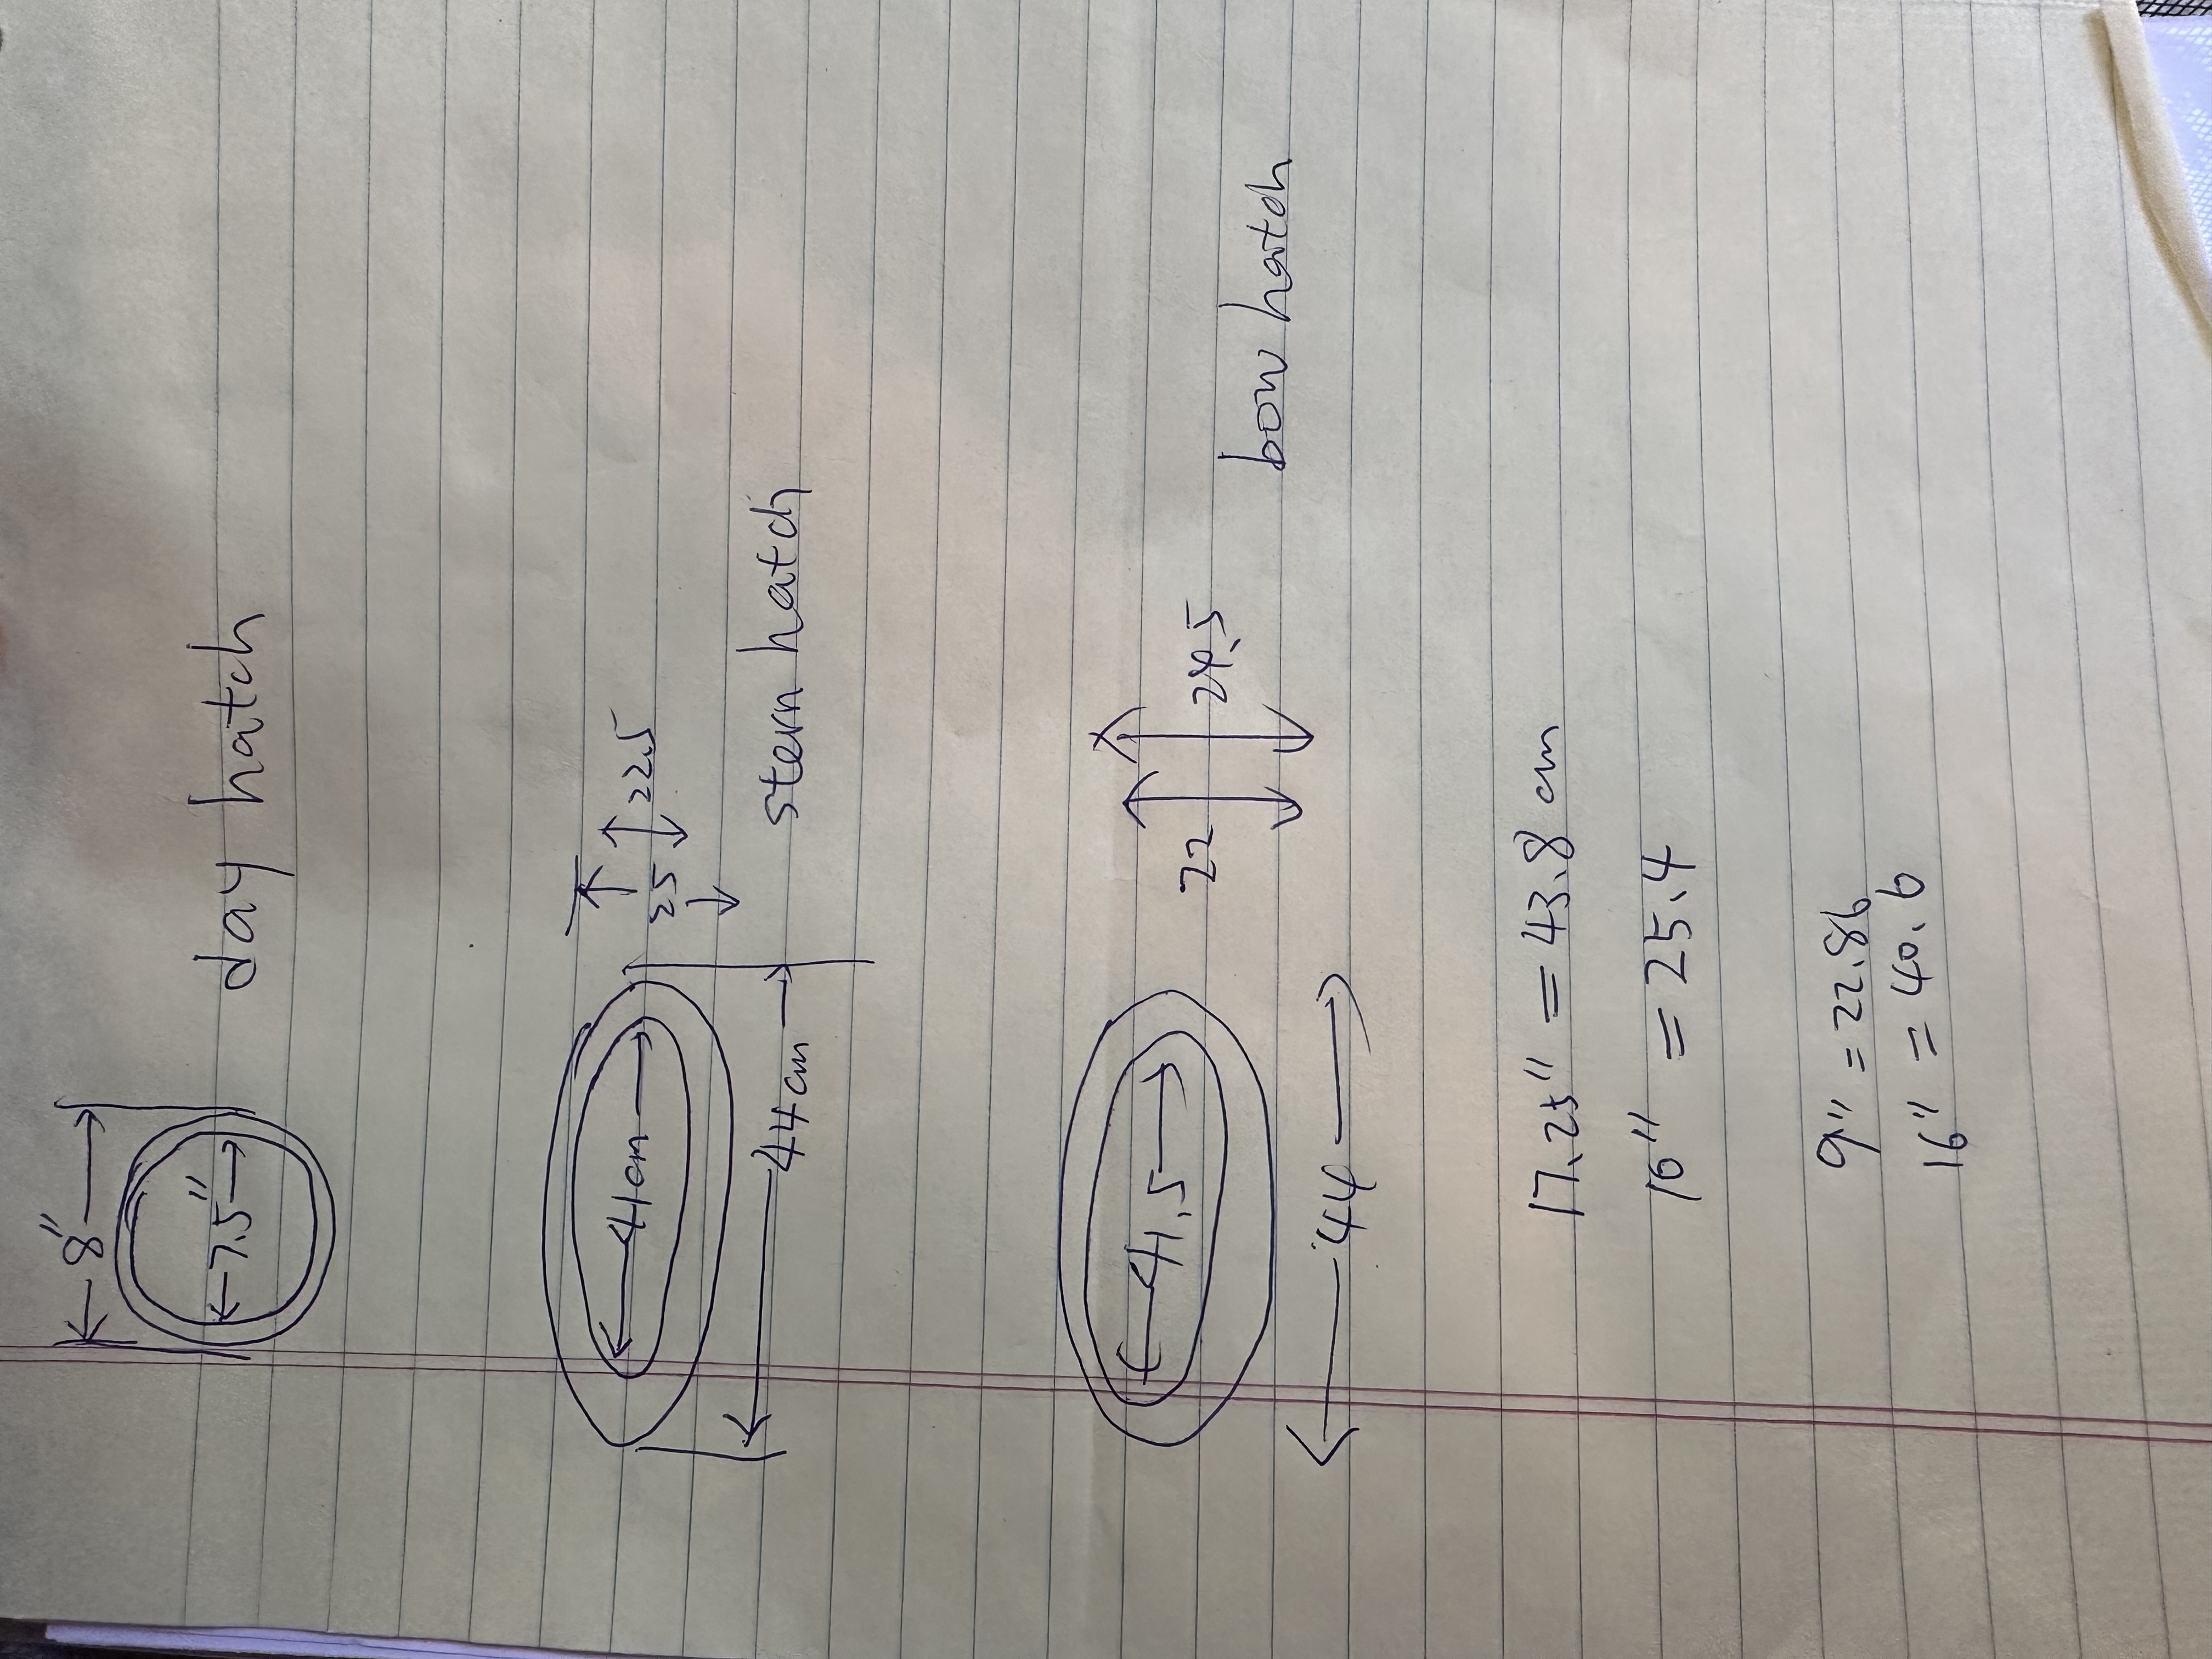 8"
7.5"
day hatch
41cm
25
22.5
44cm
stern hatch
41.5
22
24.5
44
bow hatch
17.25" = 43.8 cm
10" = 25.4
9" = 22.86
16" = 40.6